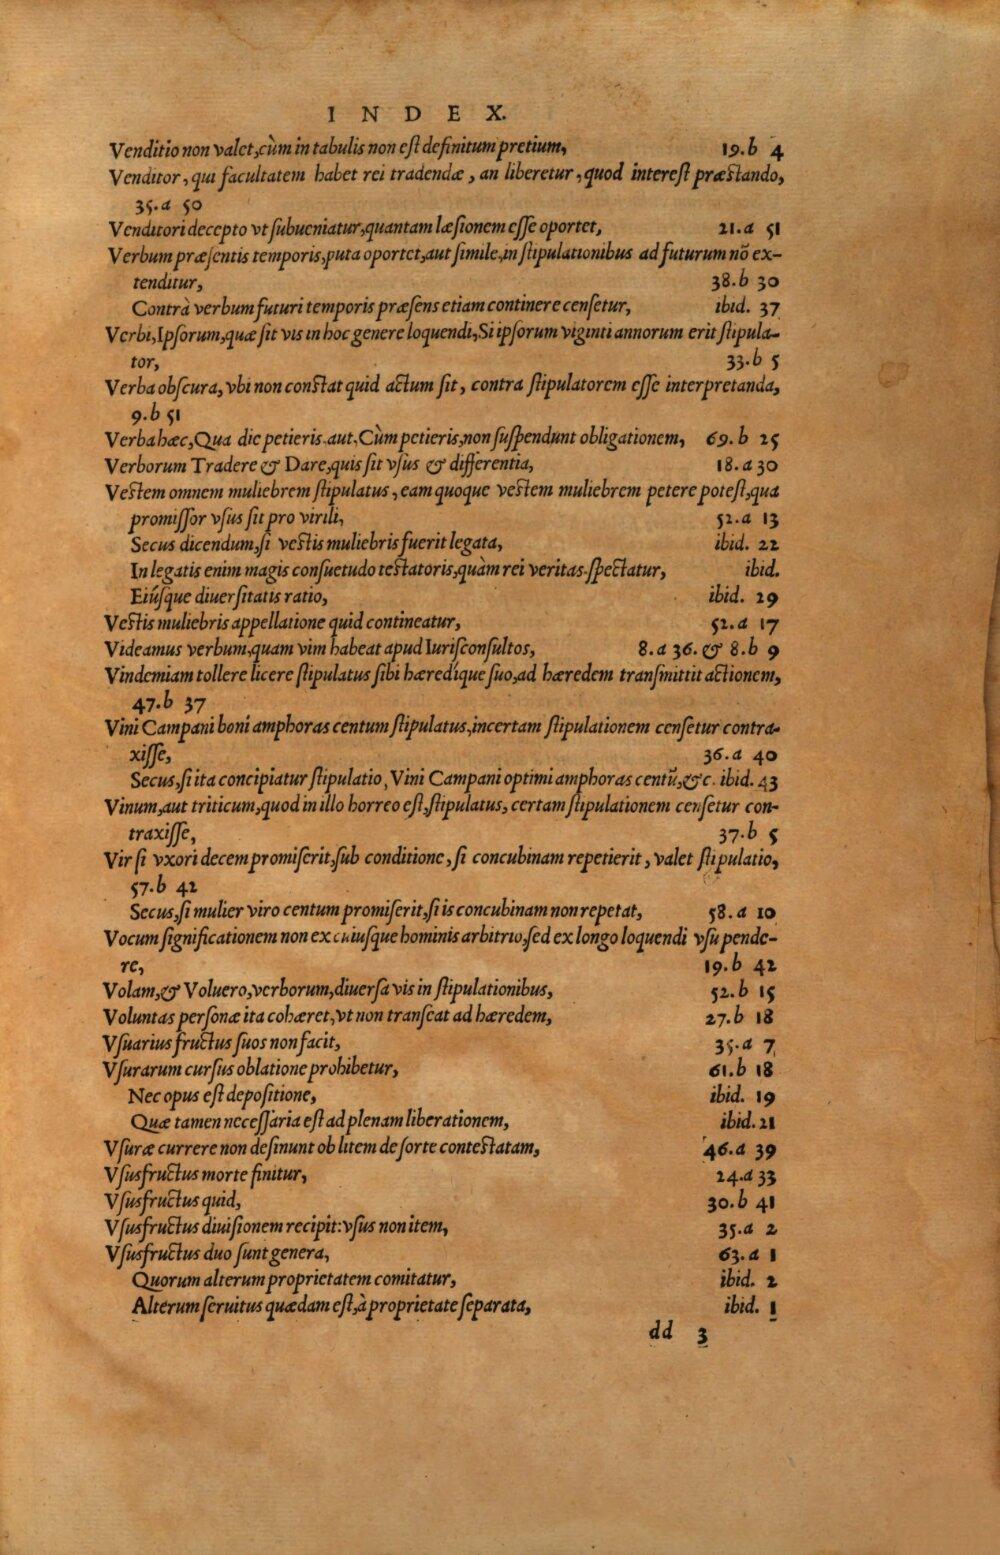 INDEX.
Venditio non valet, cùm in tabulis non est definitum pretium, 19.b 4
Venditor, qui facultatem habet rei tradendæ, an liberetur, quod interest præstando,
35.a 50
Venditori decepto vt subueniatur, quantam læsionem esse oportet, 21.a 51
Verbum præsentis temporis, puta oportet, aut simile, in stipulationibus ad futurum nõ ex-
tenditur, 38.b 30
Contrà verbum futuri temporis præsens etiam continere censetur, ibid. 37
Verbi, Ipsorum, quæ sit vis in hoc genere loquendi, Si ipsorum viginti annorum erit stipula-
tor, 33.b 5
Verba obscura, vbi non constat quid actum sit, contra stipulatorem esse interpretanda,
9.b 51
Verba hæc, Qua die petieris. aut, Cùm petieris, non suspendunt obligationem, 69.b 25
Verborum Tradere & Dare, quis sit vsus & differentia, 18.a 30
Vestem omnem muliebrem stipulatus, eam quoque vestem muliebrem petere potest, qua
promissor vsus sit pro virili, 52.a 13
Secus dicendum, si vestis muliebris fuerit legata, ibid. 22
In legatis enim magis consuetudo testatoris, quàm rei veritas spectatur, ibid.
Eiúsque diuersitatis ratio, ibid. 29
Vestis muliebris appellatione quid contineatur, 52.a 17
Videamus verbum, quam vim habeat apud Iurisconsultos, 8.a 36. & 8.b 9
Vindemiam tollere licere stipulatus sibi hæredíque suo, ad hæredem transmittit actionem,
47.b 37
Vini Campani boni amphoras centum stipulatus, incertam stipulationem censetur contra-
xisse, 36.a 40
Secus, si ita concipiatur stipulatio, Vini Campani optimi amphoras centũ, &c. ibid. 43
Vinum, aut triticum, quod in illo horreo est, stipulatus, certam stipulationem censetur con-
traxisse, 37.b 5
Vir si vxori decem promiserit, sub conditione, si concubinam repetierit, valet stipulatio,
57.b 42
Secus, si mulier viro centum promiserit, si is concubinam non repetat, 58.a 10
Vocum significationem non ex cuiusque hominis arbitrio, sed ex longo loquendi vsu pende-
re, 19.b 42
Volam, & Voluero, verborum, diuersa vis in stipulationibus, 52.b 15
Voluntas personæ ita cohæret, vt non transeat ad hæredem, 27.b 18
Vsuarius fructus suos non facit, 35.a 7
Vsurarum cursus oblatione prohibetur, 61.b 18
Nec opus est depositione, ibid. 19
Quæ tamen necessaria est ad plenam liberationem, ibid. 21
Vsuræ currere non desinunt ob litem de sorte contestatam, 46.a 39
Vsusfructus morte finitur, 24.a 33
Vsusfructus quid, 30.b 41
Vsusfructus diuisionem recipit: vsus non item, 35.a 2
Vsusfructus duo sunt genera, 63.a 1
Quorum alterum proprietatem comitatur, ibid. 2
Alterum seruitus quædam est, à proprietate separata, ibid. 1
dd 3